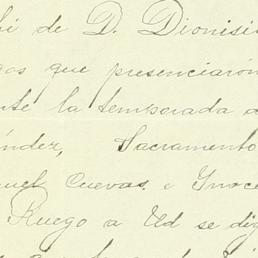 hi de D. Dionisi
gos que presenciarón
nte la temporada d
índez, Sacramento
uel Cuevas, e Ynoce
Ruego a Ud se dig